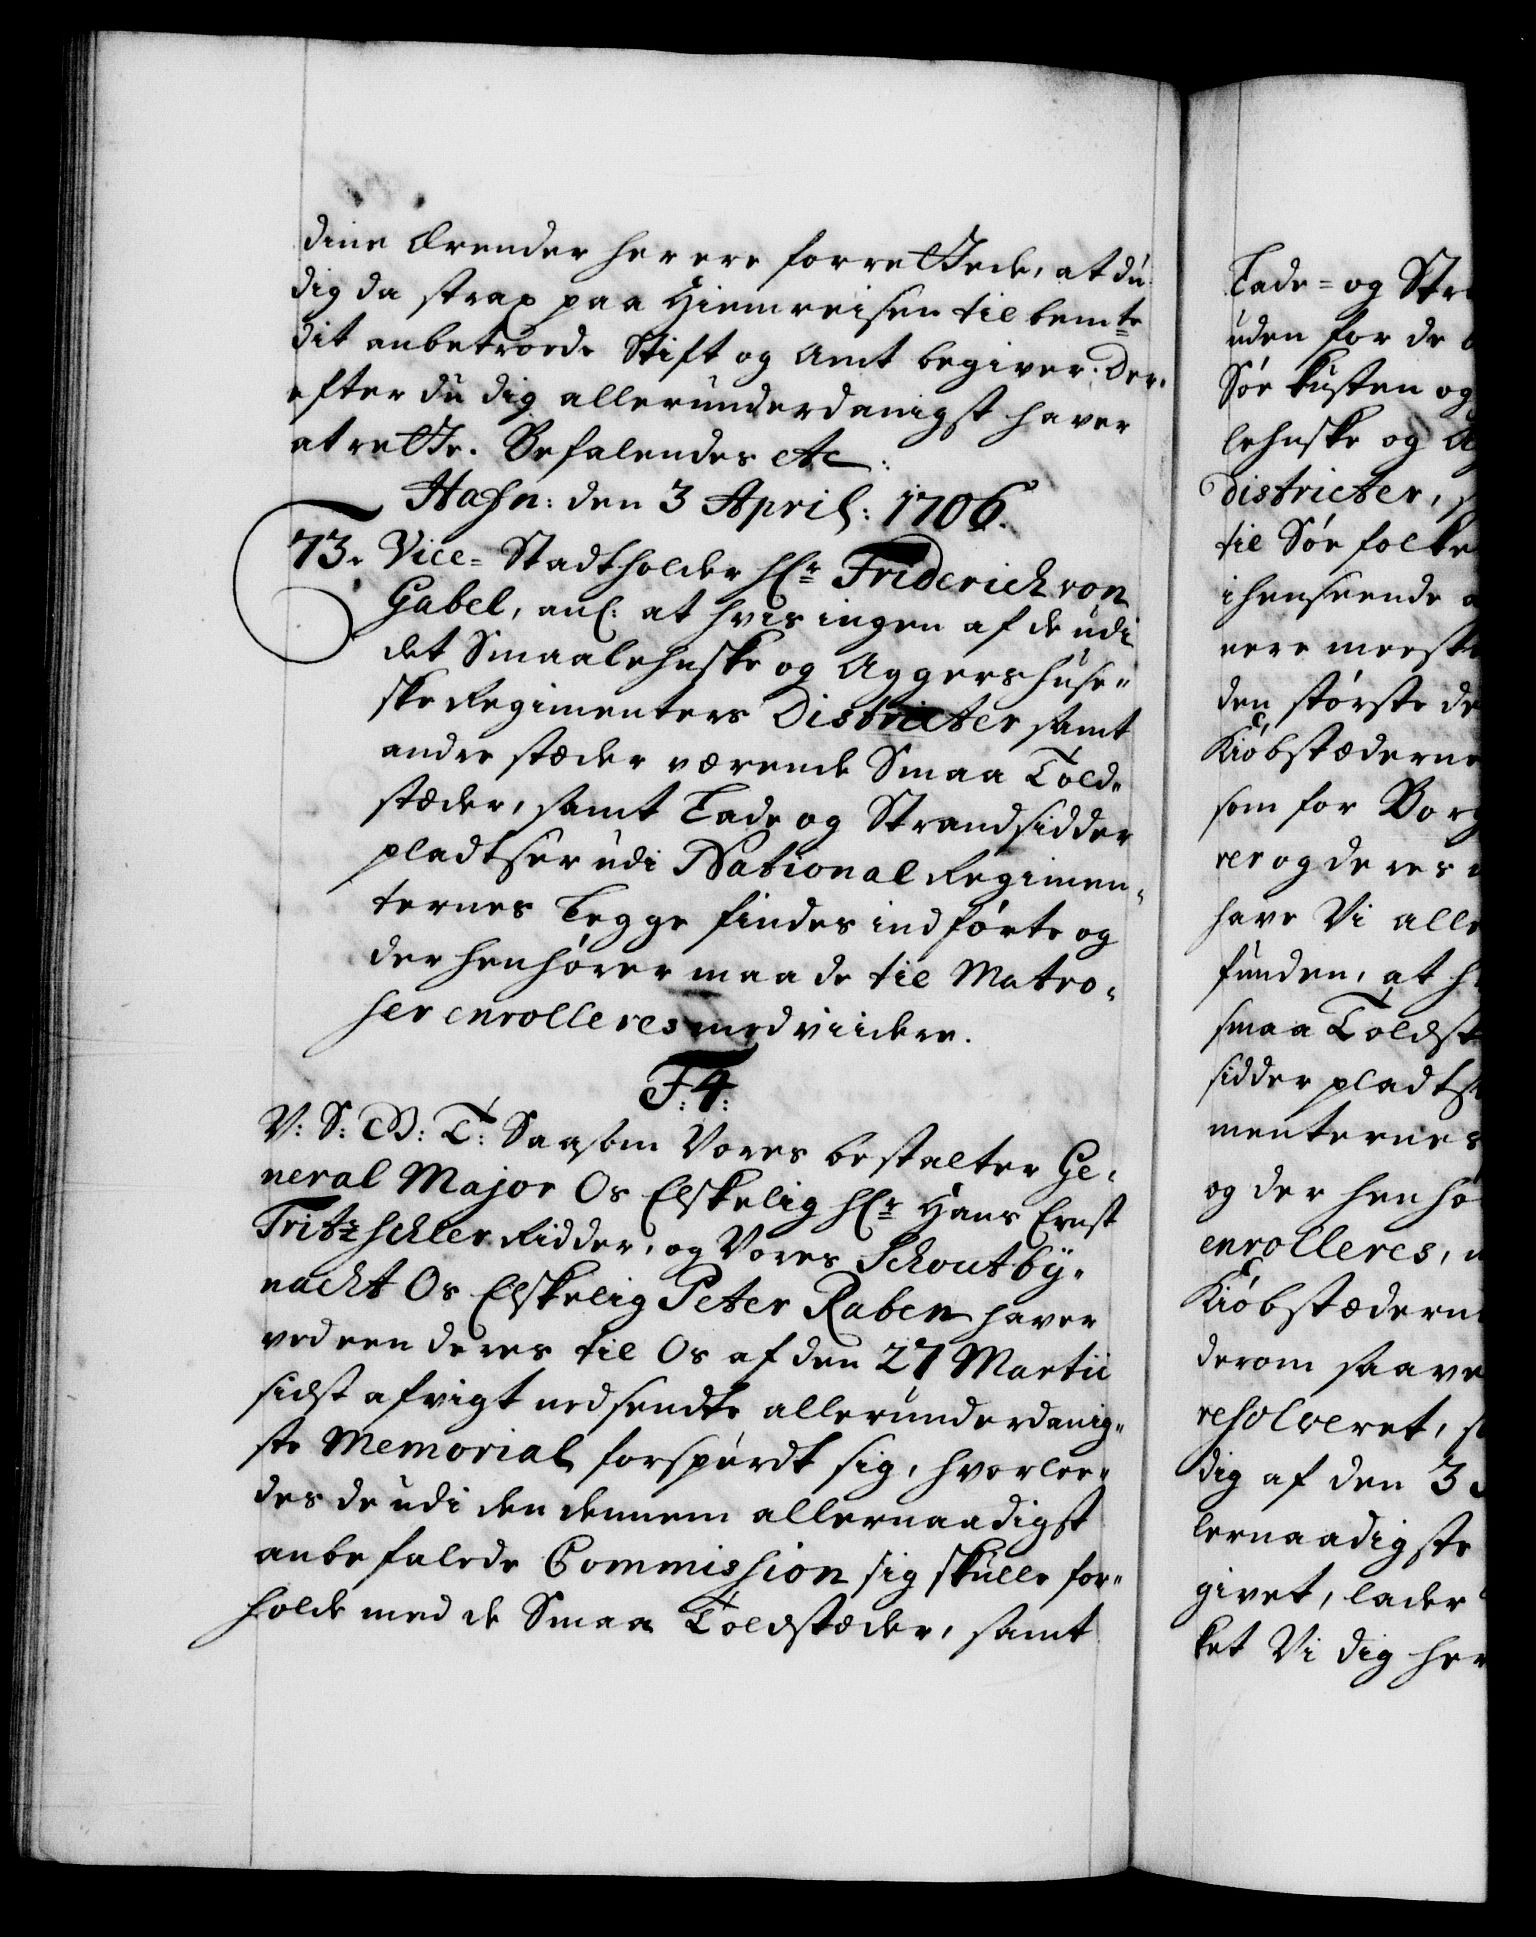 dine Ærender her ere forrettede, at du
dig da strax paa Hiemreisen til bemte
dit anbetroede Stift og Amt begiver. Der-
efter du dig allerunderdanigst haver
at rette. Befalendes etc:
Hafn: den 3 April: 1706.
73. Vice-Stadtholder Hr Friderich von
Gabel, anl: at hvis ingen af de udi
det Smaalehnske og Aggershuse-
ske Regimenters Districter samt
andre stæder værende Smaa Told-
stæder, samt Lade og Strandsidder
pladtser udi National Regimen-
ternes Legge findes indførte og
der henhører maa de til Matro-
ser enrolleres med viidere.
F: 4:
V: S: G: T: Saasom Vores bestalter Ge-
neral Major Os Elskelig Hr Hans Ernst
Tritzschler Ridder, og Vores Schoutby-
nacht Os Elskelig Peter Raben haver
ved een deres til Os af den 27 Martii
sidst afvigt nedsendte allerunderdanig-
ste Memorial forspurdt sig, hvorlee-
des de udi den dennem allernaadigst
anbefalede Commission sig skulle for-
holde med de Smaa Toldstæder, samt
Lade- og Str
uden for de
Søe Kusten og
lehnske og A
Districter, s
til Søe folke
i henseende
nere meeste
den største de
Kiøbstæderne
som for Borg
rer og deres
have Vi alle
funden, at h
smaa Toldst
sidder pladts
menternes
og der henhø
enrolleres,
Kiøbstædern
derom saave
resolveret, s
dig af den 3
lernaadigste
givet, lader
ket Vi dig her